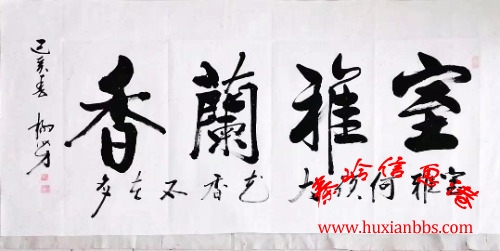 室雅蘭香
室雅何須大花香不在多
己亥春
www.huxianbbs.com